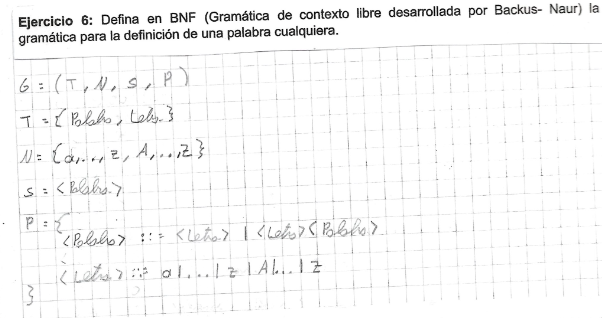 Ejercicio 6: Defina en BNF (Gramática de contexto libre desarrollada por Backus- Naur) la
gramática para la definición de una palabra cualquiera.
G = (T, N, S, P)
T = { Palabra, Letra }
N = {a,..., z, A,...,Z}
S = <Palabra>
P = {
<Palabra> ::= <Letra> | <Letra><Palabra>
<Letra> ::= a|...|z|A|...|Z
}